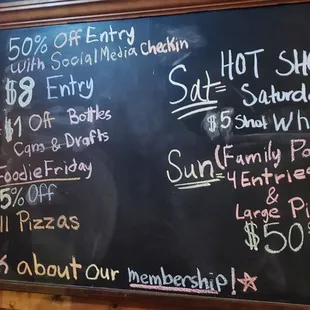 50% Off Entry
with Social Media Checkin
$8 Entry
$1 Off Bottles
Cans & Drafts
FoodieFriday
5% Off
ll Pizzas
Sat=
HOT SHO
Saturda
$5 Shot Wh
Sun (Family Pa
4 Entries
&
Large Pi
$50
k about our membership!